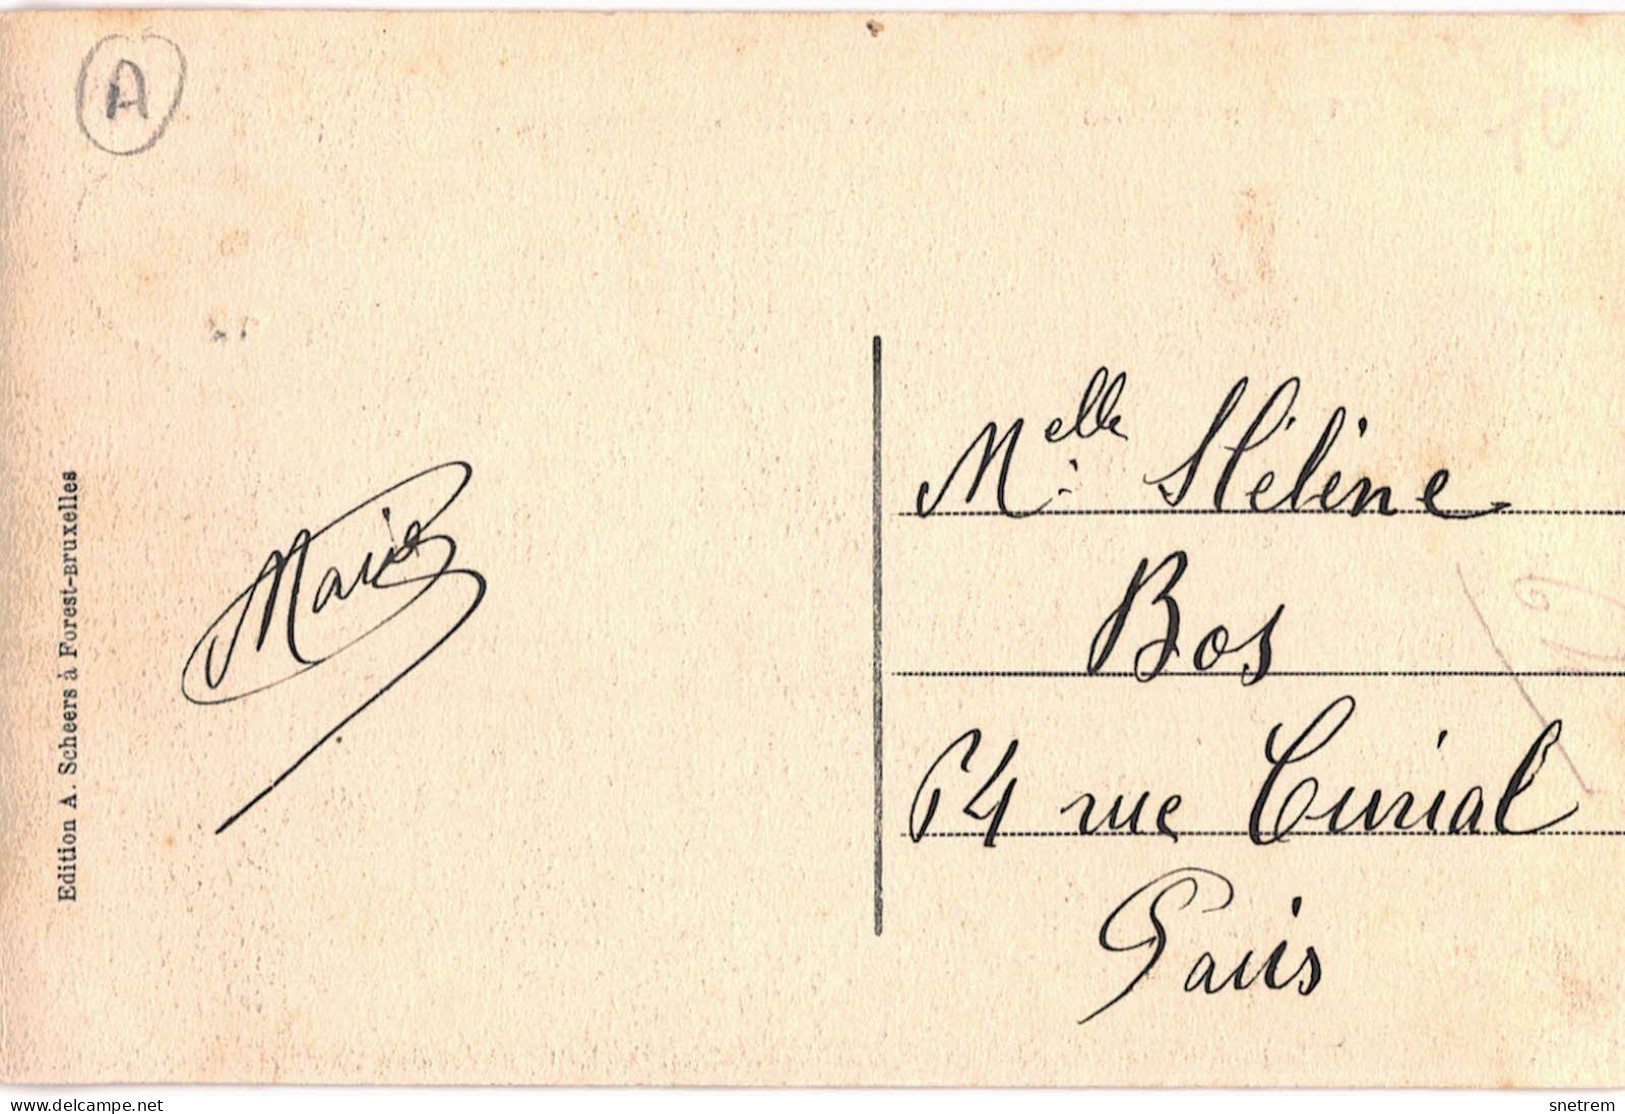 A
Edition A. Scheers à Forest-Bruxelles
Marie
Melle Hélène
Bos
64 rue Curial
Paris
Delcampe.net
snetrem